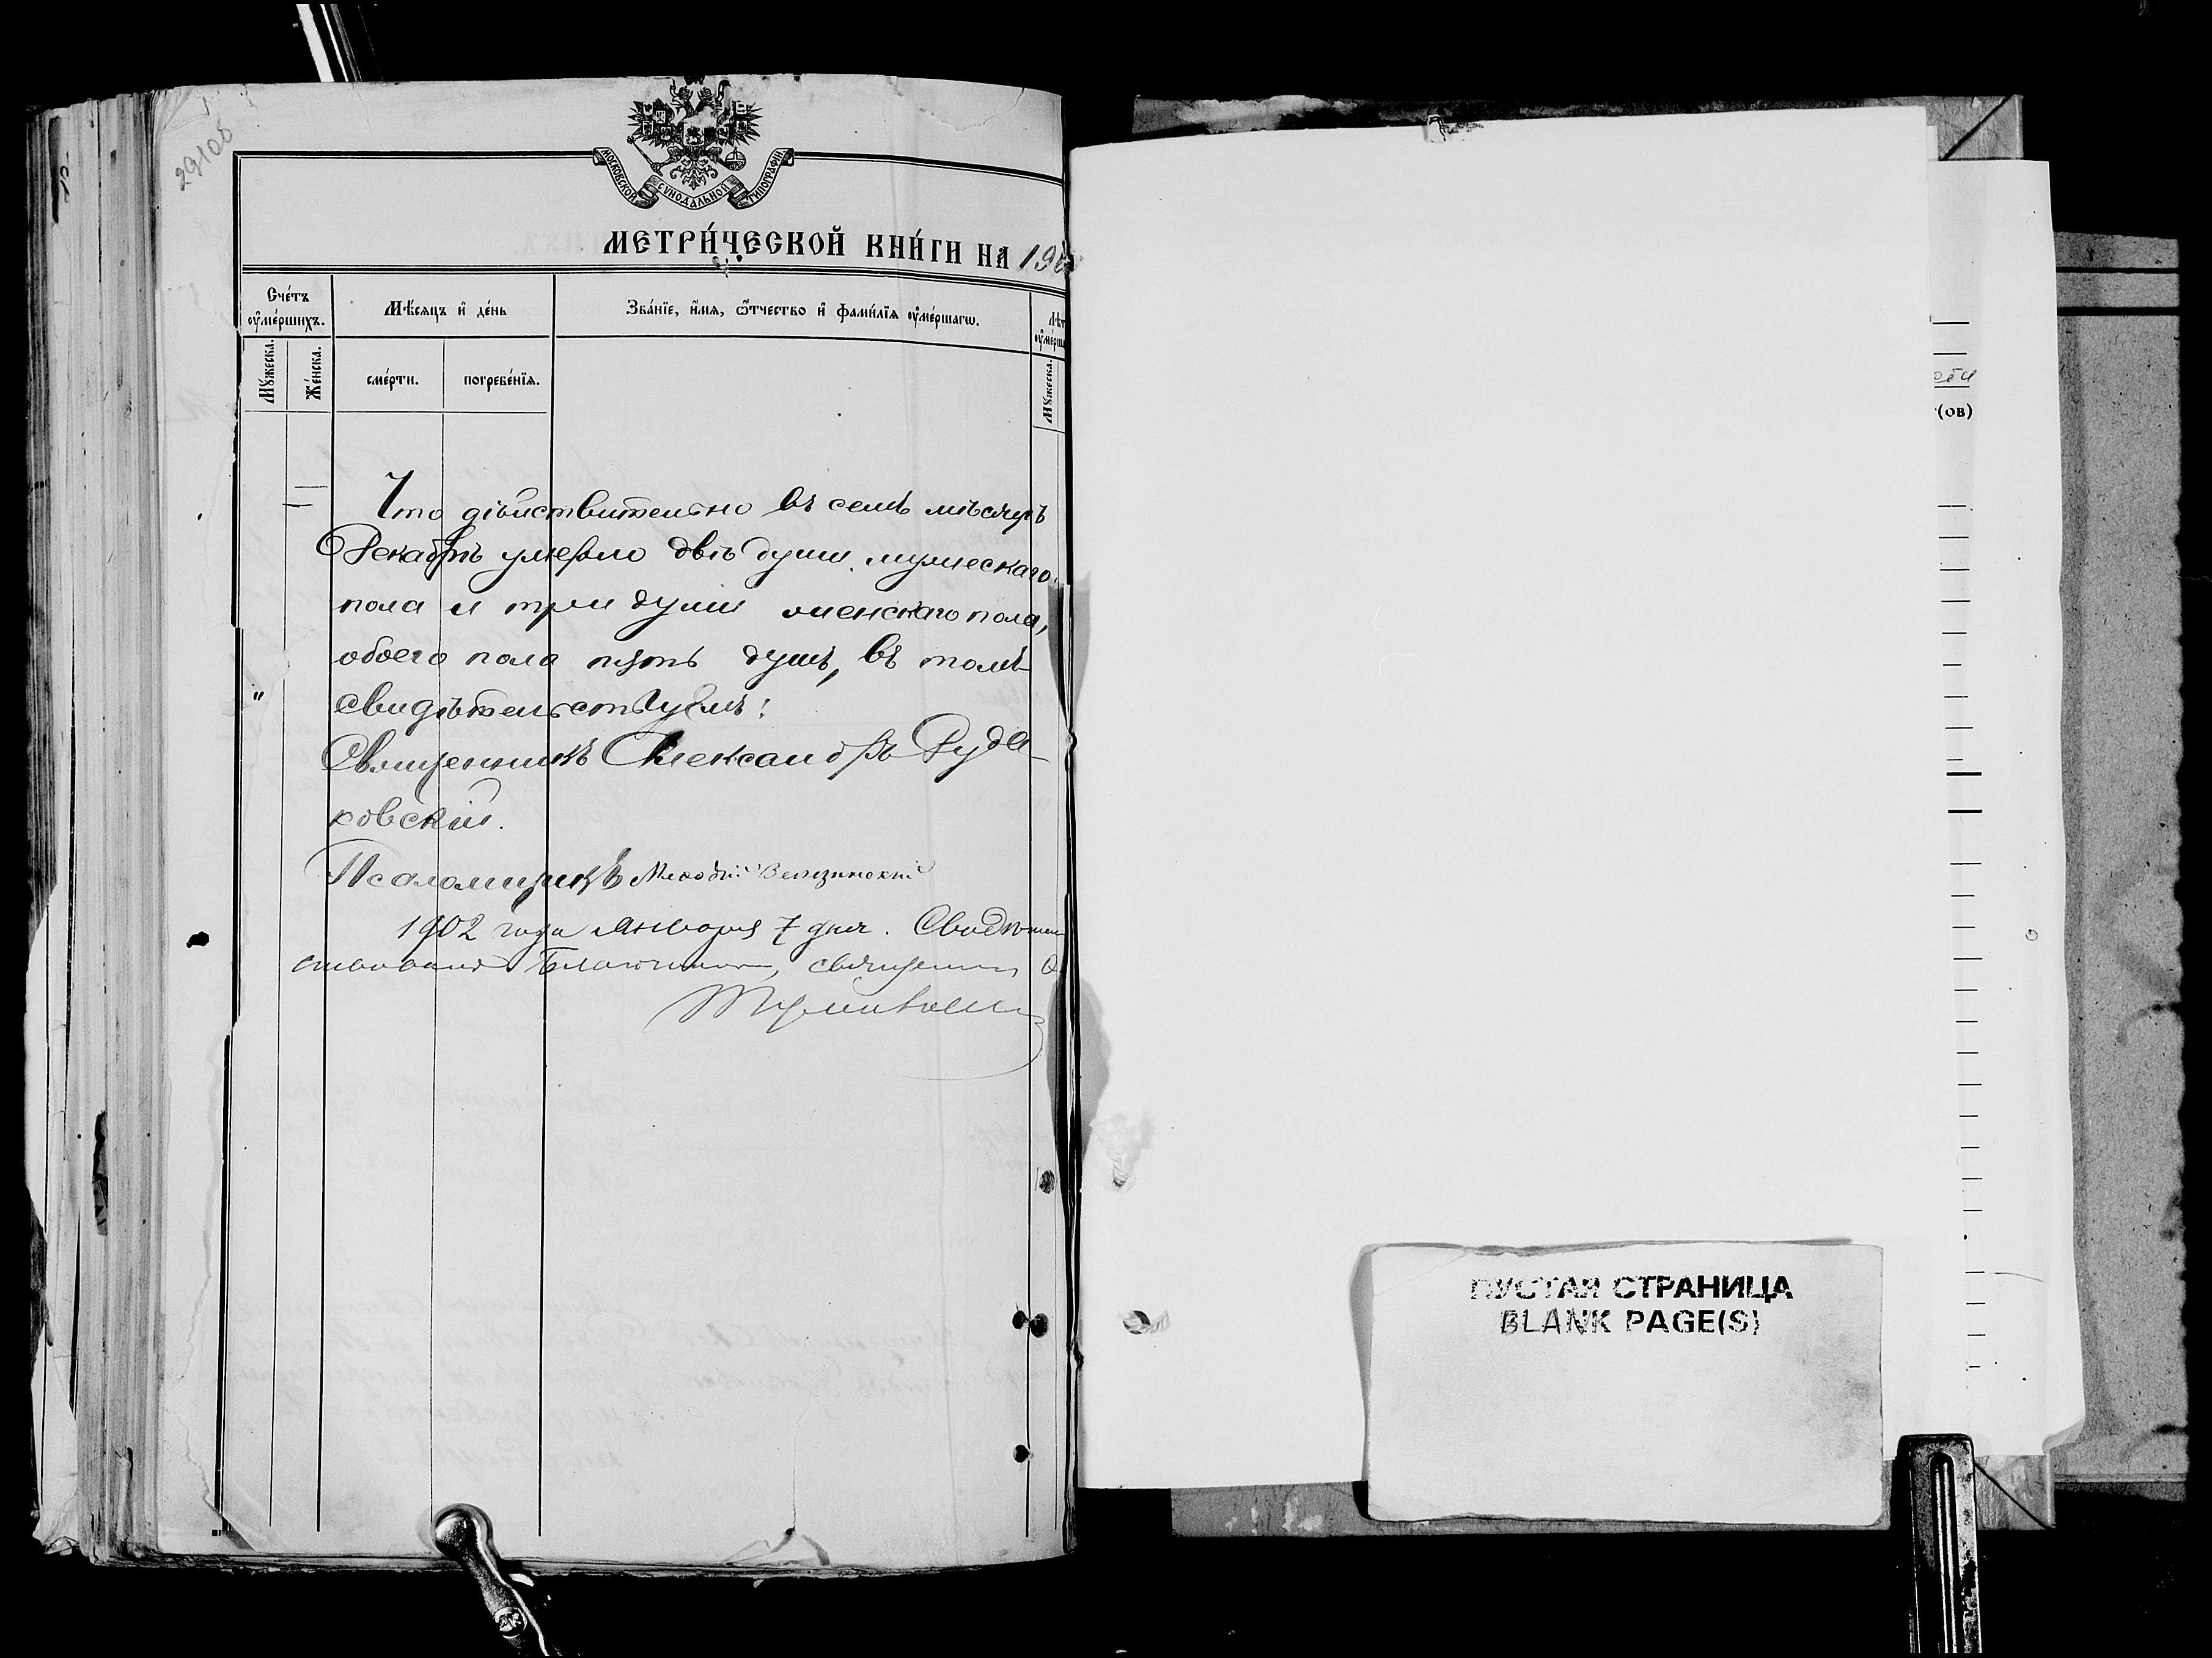 29108
МОСКОВСКОЙ СѴНОДАЛЬНОЙ ТИПОГРАФІИ
МЕТРИ́ЧЕСКОЙ КНИ́ГИ НА 190
Сче́тъ ᲂу҆ме́ршихъ.
Мѣ́сяцъ и҆ де́нь
Зва́нїе, и҆́мѧ, ѻ҆́тчество и҆ фами́лїѧ ᲂу҆ме́ршагѡ.
Мꙋ́жеска.
Же́нска.
сме́рти.
погребе́нїѧ.
Мꙋ́жеска.
Что дѣйствительно въ семъ мѣсяцѣ
Декабрѣ умерло двѣ души мужескаго
пола и три души женскаго пола,
обоего пола пять душъ, въ томъ
свидѣтельствуемъ:
Священникъ Александръ Руда-
ковскій.
Псаломщикъ
1902 года Января 7 дня. Свидѣтель
ствовалъ Благочинный, священникъ
(ов)
ПУСТАЯ СТРАНИЦА
BLANK PAGE(S)